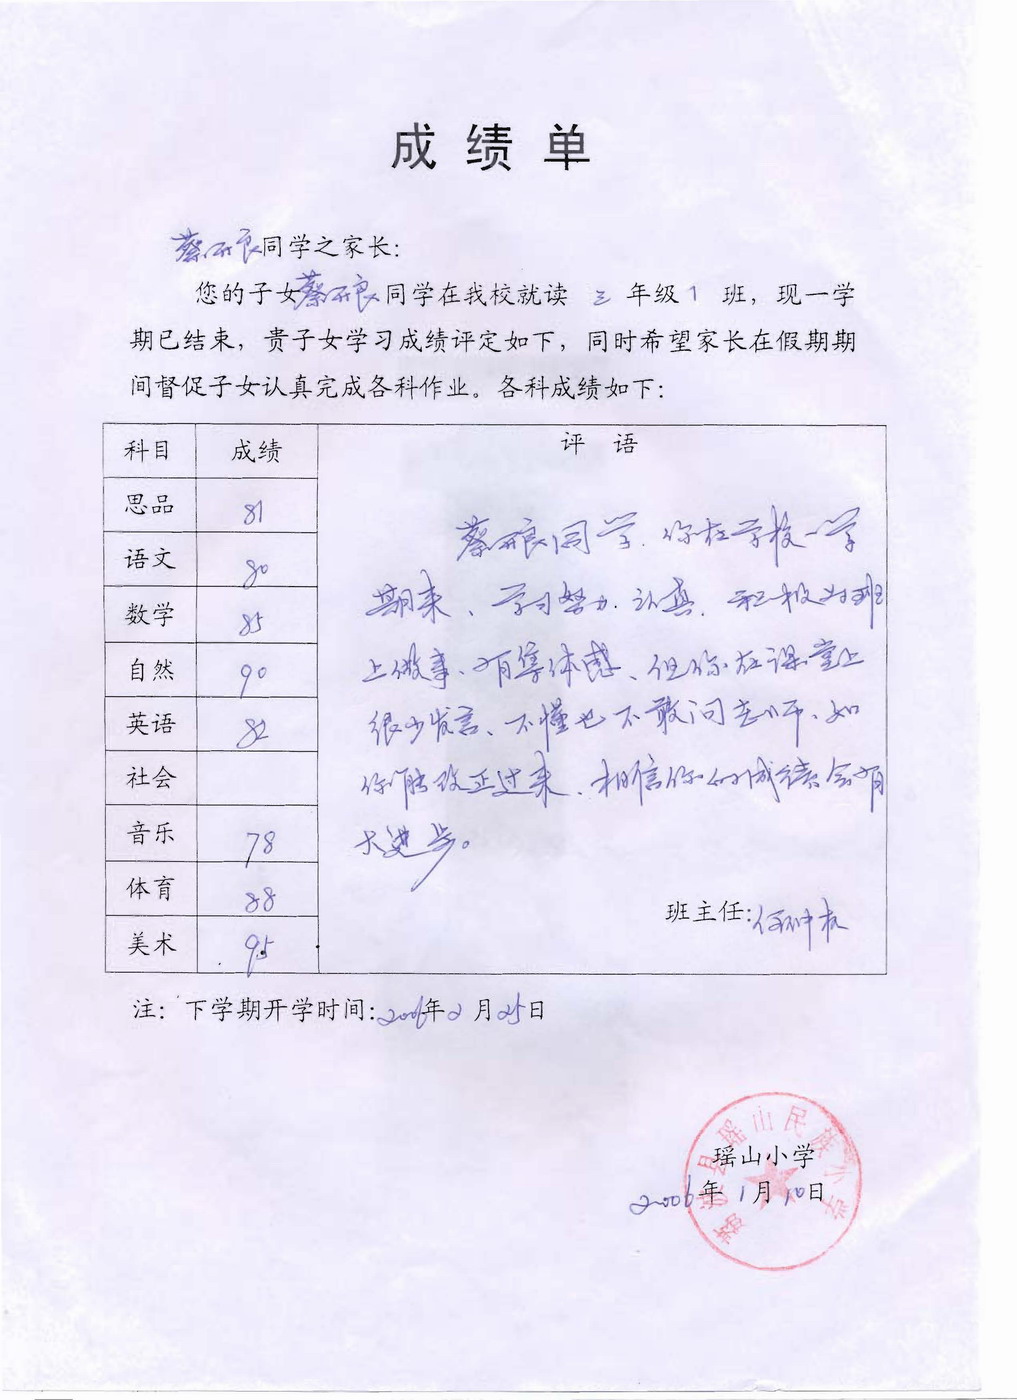 成绩单
蔡 良同学之家长：
您的子女蔡 良同学在我校就读 三 年级 1 班，现一学
期已结束，贵子女学习成绩评定如下，同时希望家长在假期期
间督促子女认真完成各科作业。各科成绩如下：
科目 成绩 评 语
思品 81
语文 80
数学 85
自然 90
英语 82
社会
音乐 78
体育 88
美术 95
蔡 良同学、你在学校一学
期来、学习努力、认真、积极为班
上做事、有集体感、但你在课堂上
很少发言、不懂也不敢问老师、如
你能改正过来、相信你的成绩会有
大进步。
班主任：何
注：下学期开学时间：2006年2月25日
荔波县瑶山民族小学
瑶山小学
2006年1月10日